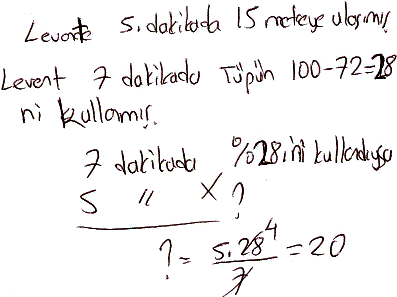 Levent 5. dakikada 15 metreye ulaşmış
Levent 7 dakikada Tüpün 100-72=28
ni kullamış.
7 dakikada %28.ini kullandıysa
5 " × ?
? = 5.28⁴/7 = 20